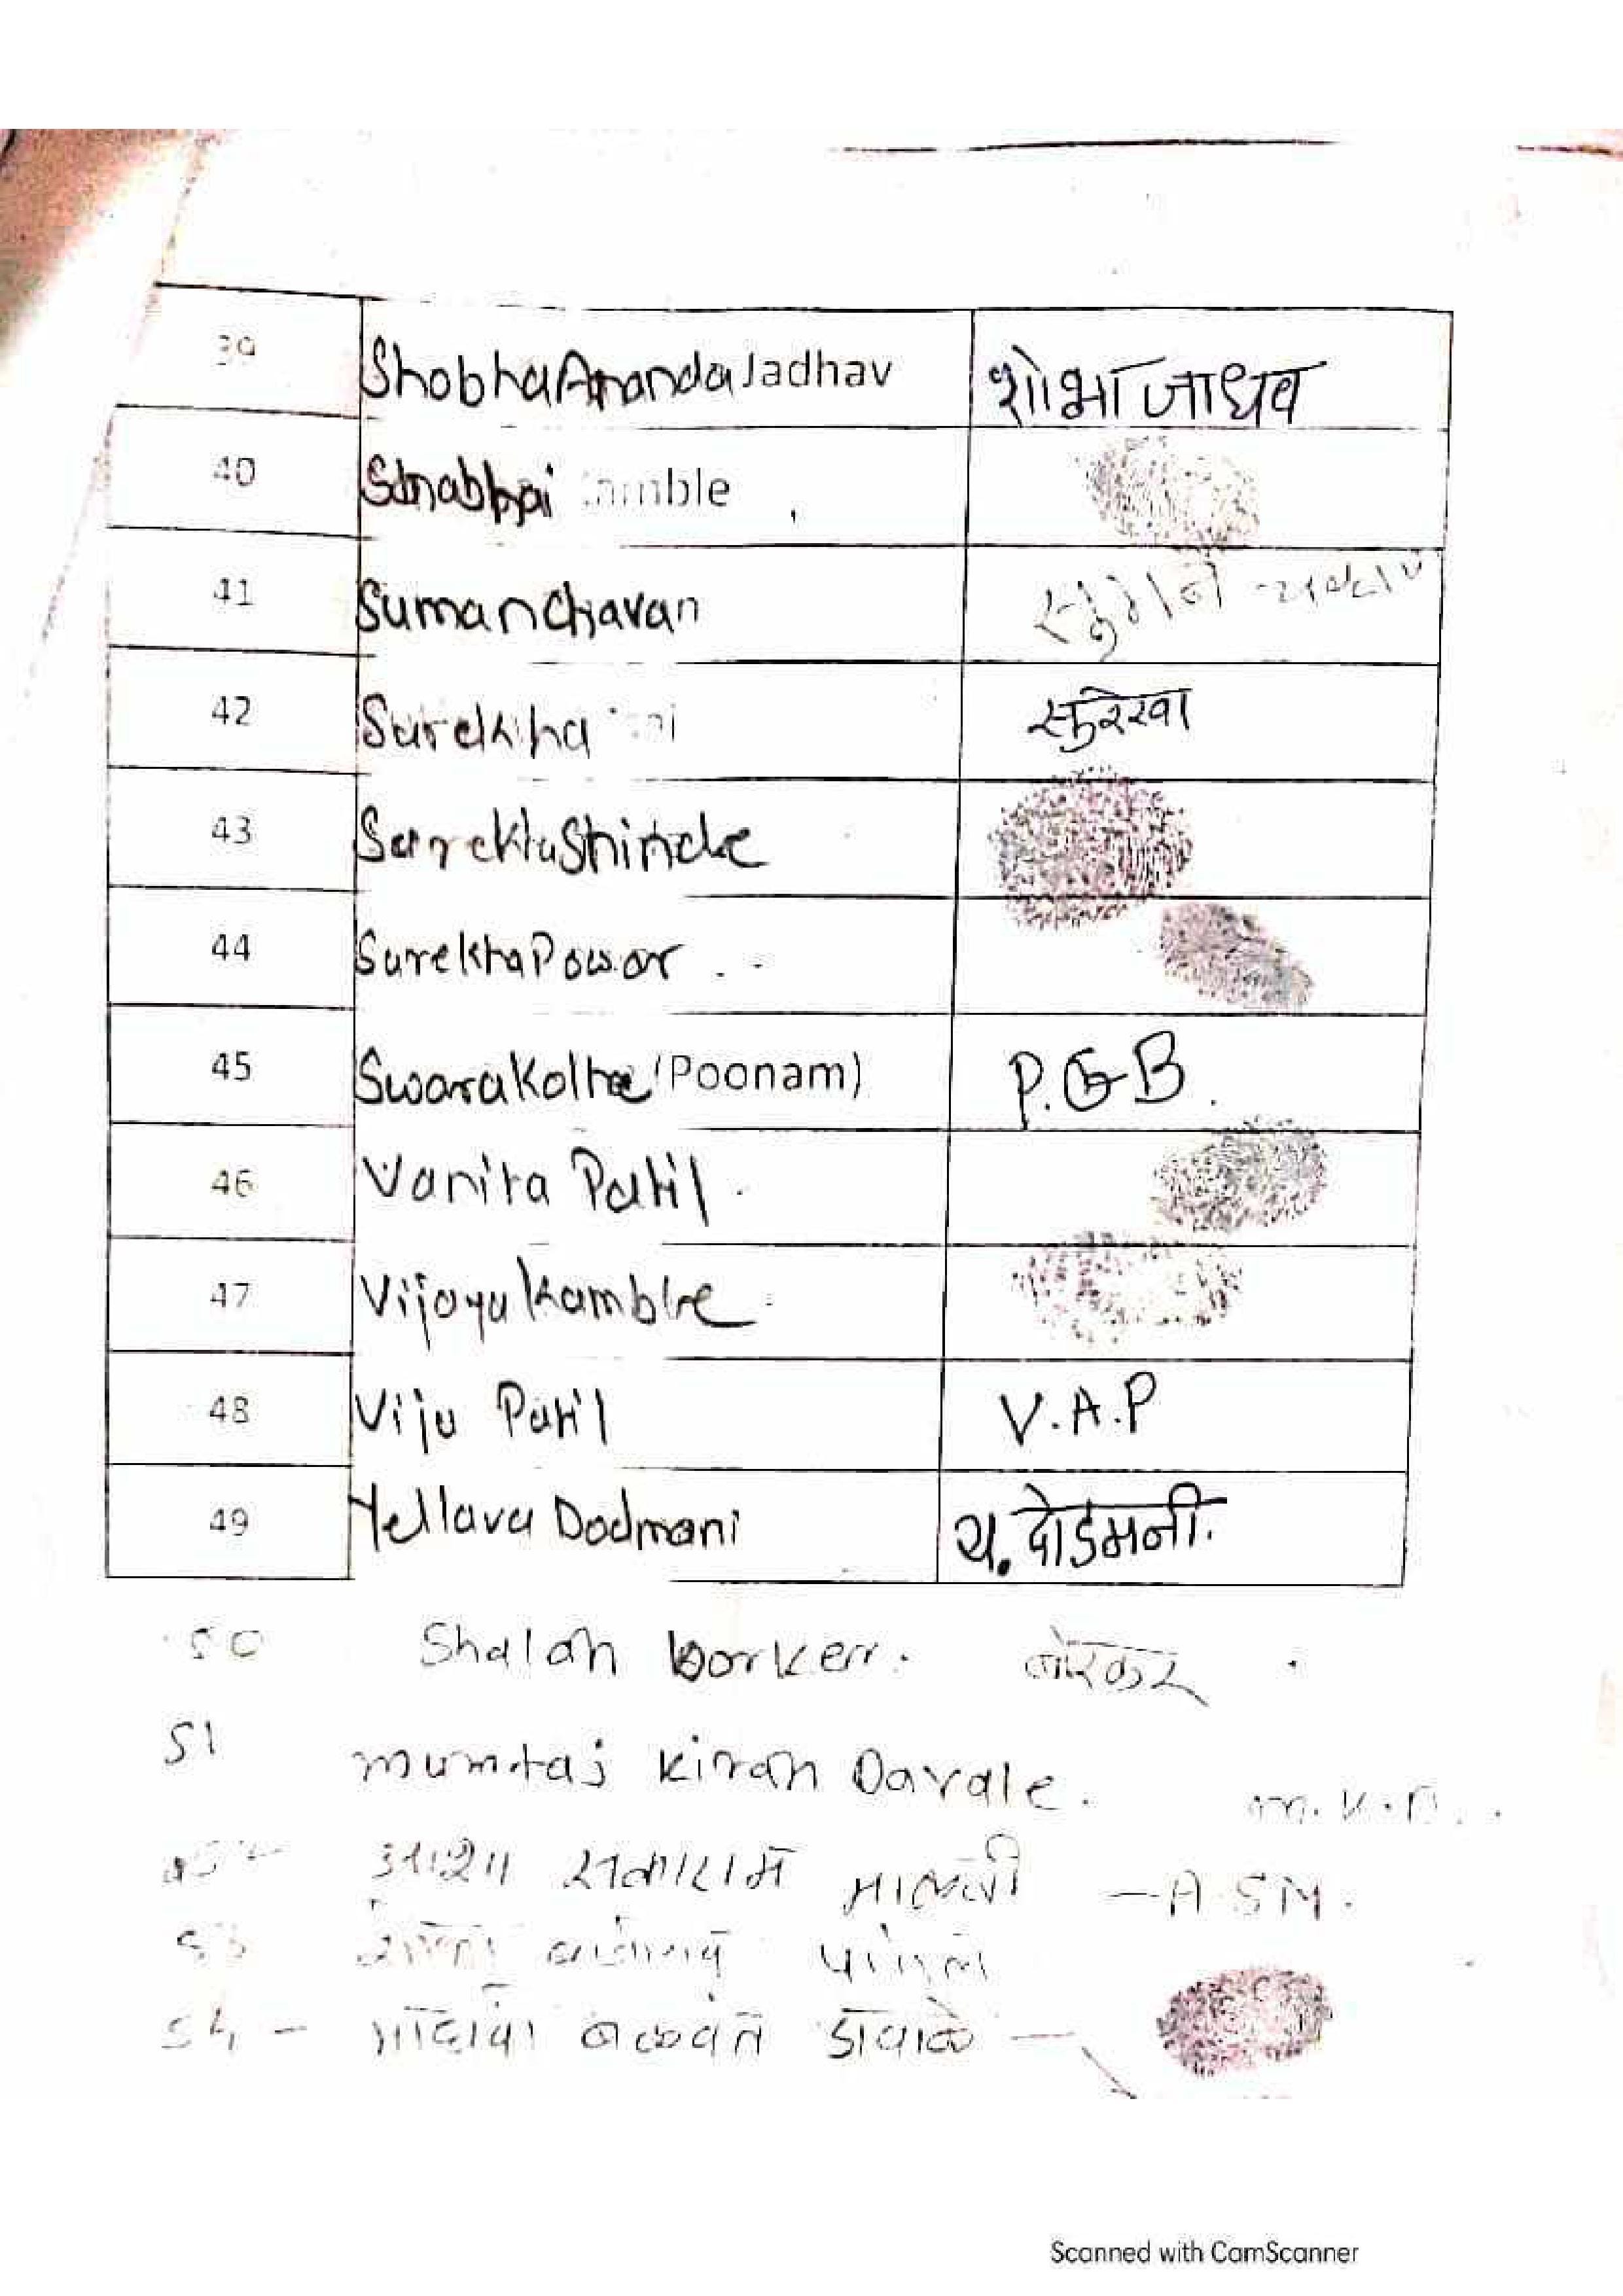 39 Shobha Ananda Jadhav शोभा जाधव
40
41 Suman Chavan सुमन
42 Surekha सुरेखा
43 Surekha Shinde
44 Surekha Powar
45 Swara Kolhe (Poonam) P.G.B.
46 Vanita Patil
47 Vijaya Kamble
48 Viju Patil V.A.P
49 Yellava Dodmani य. दोडमनी.
50 Shalan borker. बोरकर
51 mumtaj kiran Davale. m.k.D.
आशा सखाराम माळवी — A.S.M.
53
54 – बळवंत डावाळे —
Scanned with CamScanner